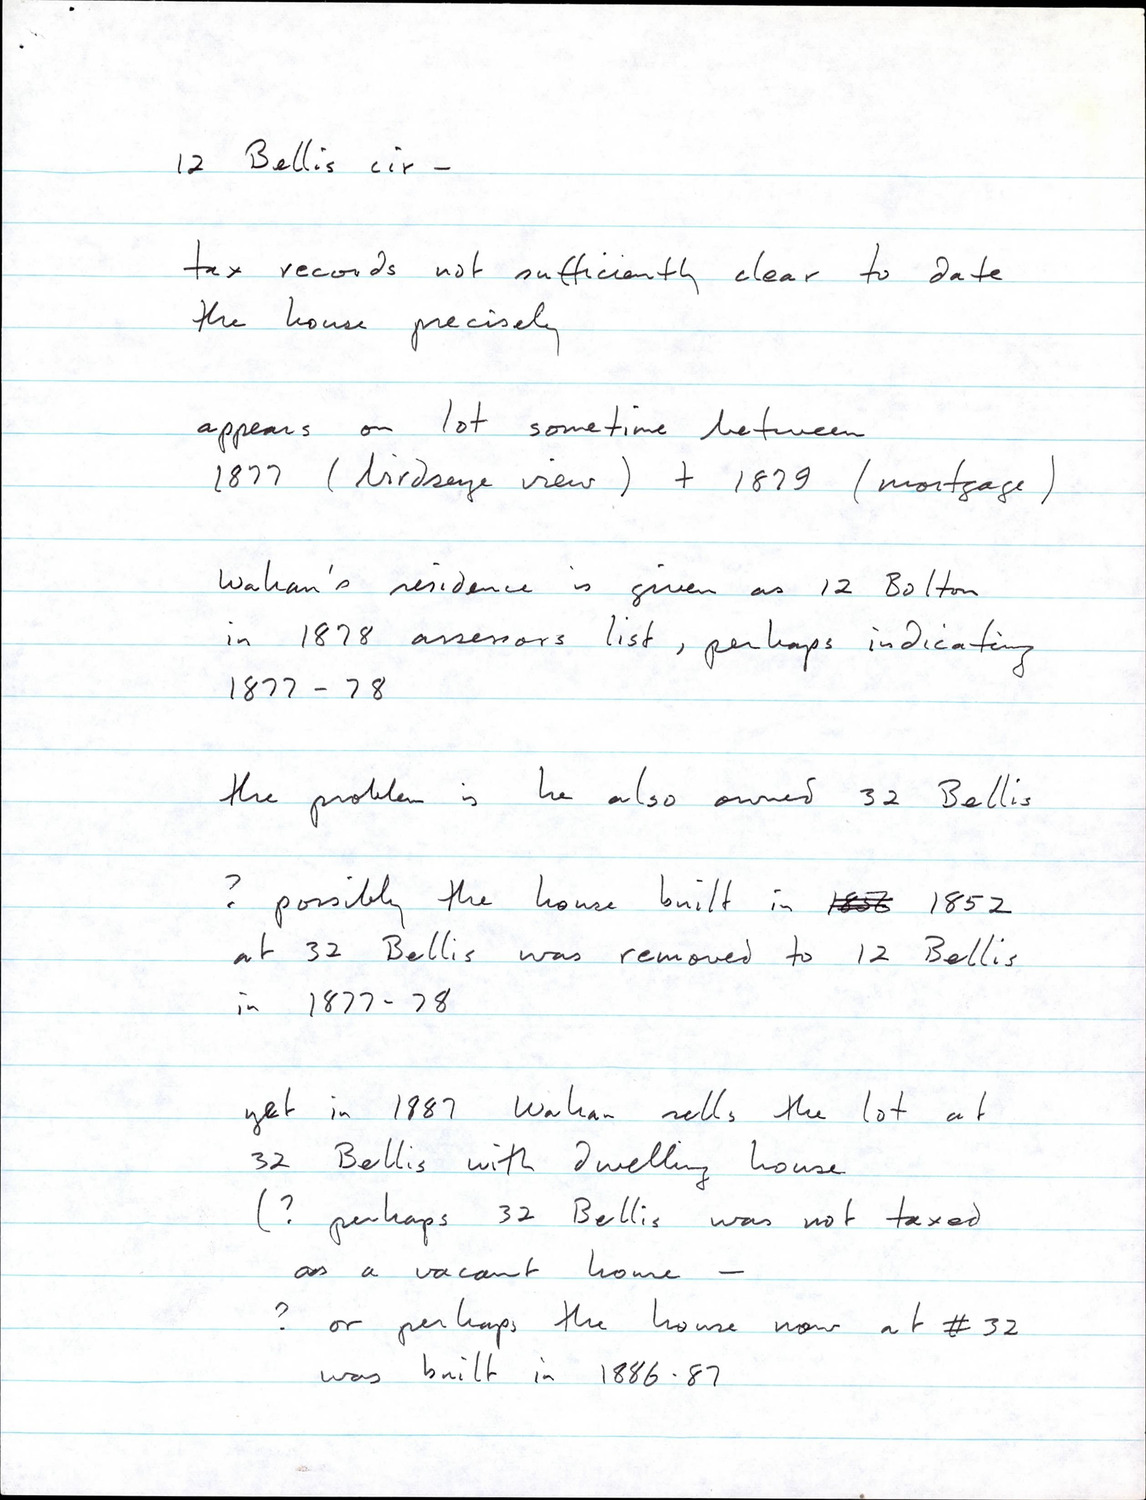 12 Bellis cir -
tax records not sufficiently clear to date
the house precisely
appears on lot sometime between
1877 (birdseye view) + 1879 (mortgage)
Wahan's residence is given as 12 Bolton
in 1878 assessors list, perhaps indicating
1877-78
the problem is he also owned 32 Bellis
? possibly the house built in 1856 1852
at 32 Bellis was removed to 12 Bellis
in 1877-78
yet in 1887 Wahan sells the lot at
32 Bellis with dwelling house
(? perhaps 32 Bellis was not taxed
as a vacant home -
? or perhaps the house now at #32
was built in 1886-87